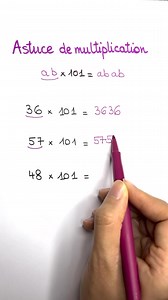 Astuce de multiplication
ab × 101 = abab
36 × 101 = 3636
57 × 101 = 575
48 × 101 =